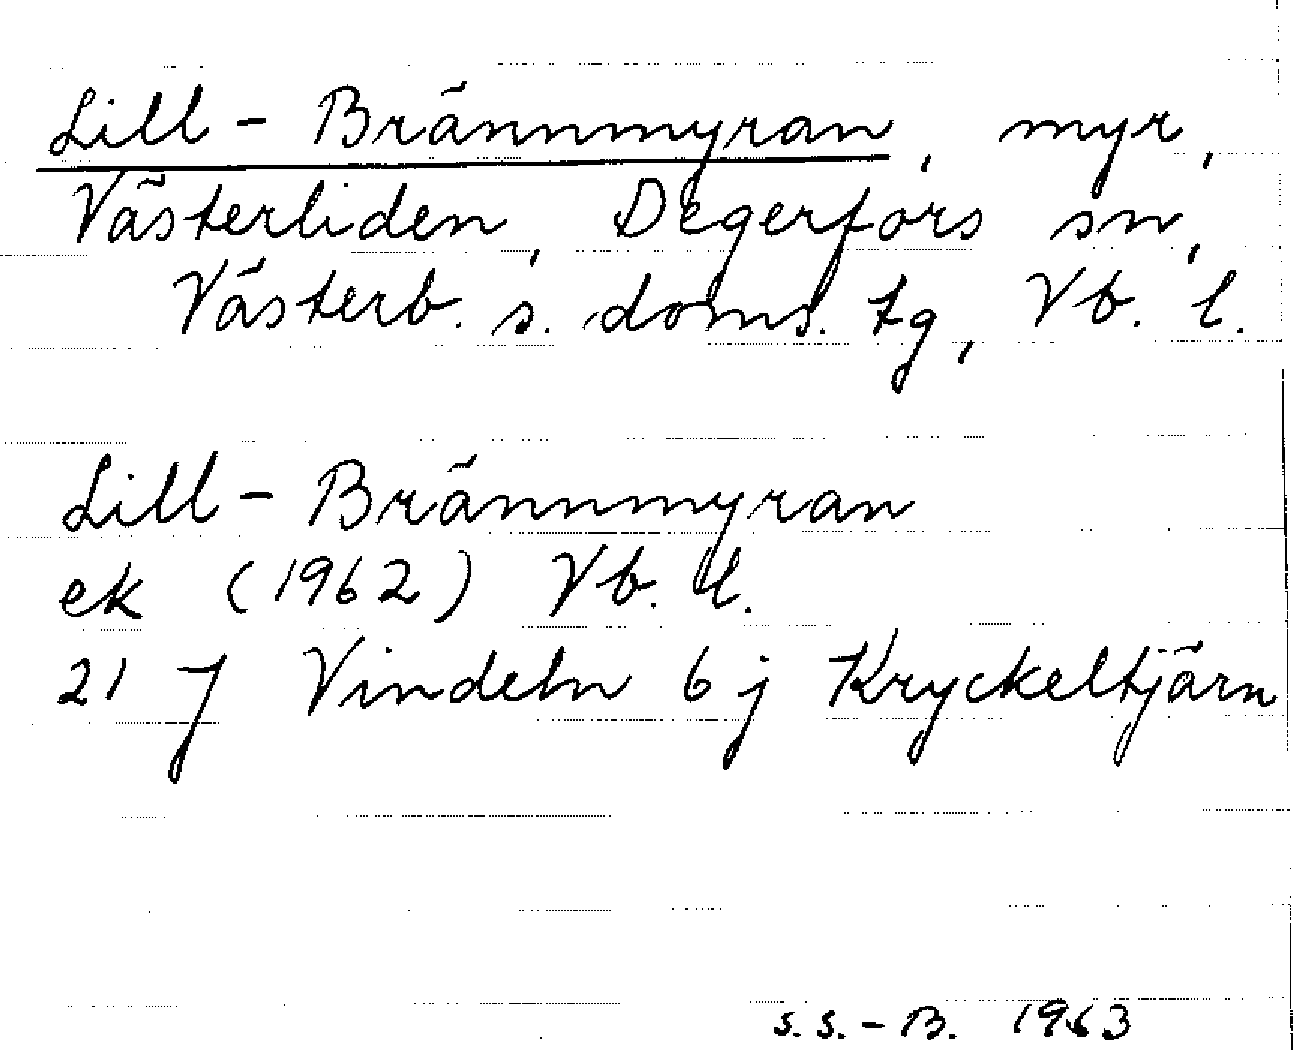 Lill - Brännmyran, myr,
Västerliden, Degerfors sn,
Västerb. s. doms. tg, Vb. l.
Lill - Brännmyran
ek (1962) Vb. l.
21 J Vindeln 6 j Kryckeltjärn
S. S. - B. 1963